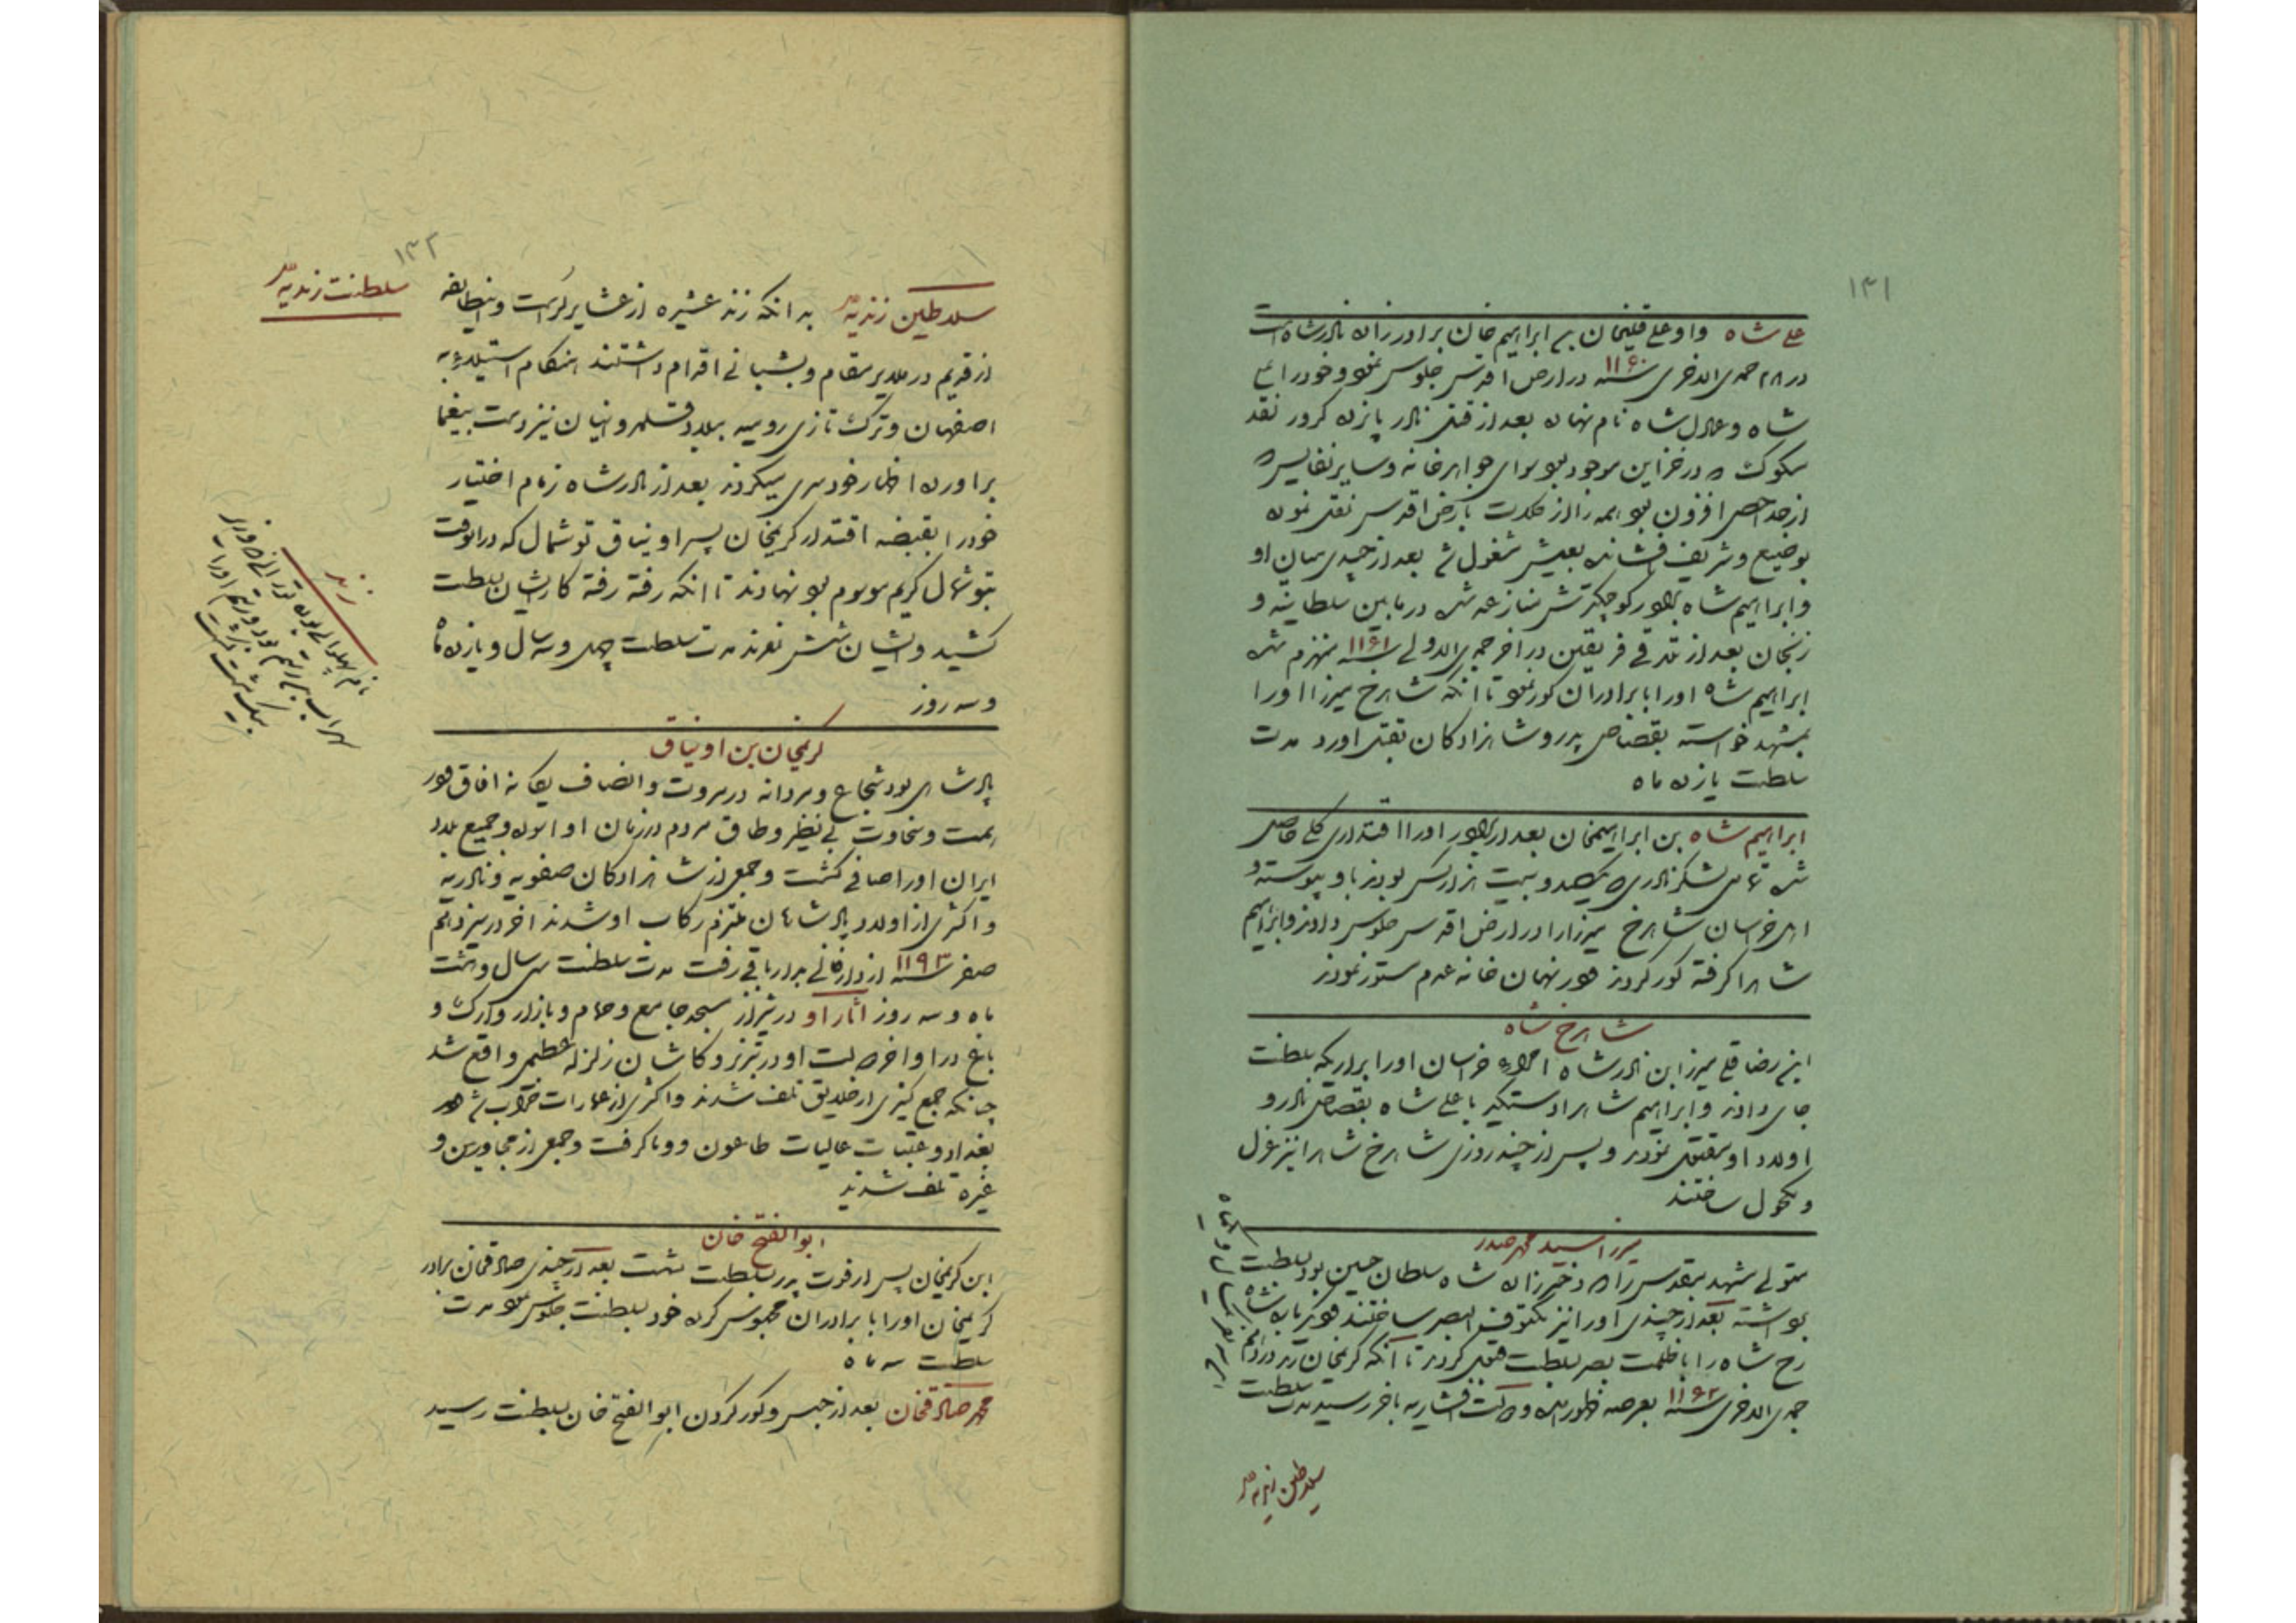 ۱۳۱
علی شاه واو علی قلیخان بن ابراهیم خان برادر زاده نادرشاه است
در ۲۸ جمدی الاخری سنه ۱۱۶۰ در ارض اقدس جلوس نمود وخودرا علی
شاه وعادل شاه نام نهاد بعد از قتل نادر پانزده کرور نقد
مسکوک که در خزاین موجود بود سوای جواهرخانه وسایر نفایس که
از حد احصی افزون بود همه را از کلات بارض اقدس نقل نموده
بوضیع وشریف فشانده بعیش مشغول شد بعد از چندی میان او
وابراهیم شاه برادر کوچکترش منازعه شده در مابین سلطانیه و
زنجان بعد از تلاقی فریقین در اخر جمدی الاولی سنه ۱۱۶۱ منهزم شده
ابراهیم شاه اورا با برادران کور نمود تا انکه شاهرخ میرزا اورا
بمشهد خواسته بقصاص پدر وشاهزادکان بقتل اورد مدت
سلطنت یازده ماه
ابراهیم شاه بن ابراهیمخان بعد از برادر اورا اقتداری کلی حاصل
شده تمامی لشکر نادری که یکصد وبیست هزار کس بودند باو پیوسته و
اهل خراسان شاهرخ میرزارا در ارض اقدس جلوس دادند وابراهیم
شاهرا کرفته کور کردند ودر نهان خانه عدم مستور نمودند
شاهرخ شاه
ابن رضا قلی میرزا بن نادرشاه امراء خراسان اورا بر اریکه سلطنت
جای دادند وابراهیم شاهرا دستکیر با علی شاه بقصاص نادر و
اولاد او بقتل نمودند وپس از چند روزی شاهرخ شاهرا نیز عزل
ومکحول ساختند
میرزا سید محمد صدر
متولی مشهد مقدس را که دختر زاده شاه سلطان حسین بود بسلطنت
برداشته بعد از چندی اورا نیز مکفوف البصر ساختند ودیگر باره شاه
رخ شاه را با ظلمت بصر بسلطنت قبول کردند تا انکه کریمخان زند در دهم
جمدی الاخری سنه ۱۱۶۲ بعرصه ظهور امده ودولت افشاریه باخر رسید مدت سلطنت
سلاطین زندیه
۱۳۲
سلطنت زندیه
سلاطین زندیه بدانکه زند عشیره از عشایر لرست واینطایفه
از قدیم در ملایر مقام وبشبانی اقدام داشتند هنکام استیلاء به
اصفهان وترک تازی رومیه ببلاد قلمرو اینان نیز دست بیغما
براورده اظهار خودسری میکردند بعد از نادرشاه زمام اختیار
خودرا بقبضه اقتدار کریمخان پسر اوینیاق توشمال که درانوقت
بتوشمال کریم موسوم بود نهادند تا انکه رفته رفته کارایشان بسلطنت
کشید وایشان شش نفرند مدت سلطنت چهل وسه سال ویازده ماه
وسه روز
زند
نام پهلوانی بوده تورانی که وزیر
سهراب بن رستم بود ورستم اورا
بیک مشت بکشت
کریمخان بن اوینیاق
پادشاهی بود شجاع ومردانه در مروت وانصاف یکانه افاق ودر
همت وسخاوت بی نظیر وطاق مردم در زمان او اسوده وجمیع بلاد
ایران اورا صافی کشت وجمعی از شاهزادکان صفویه ونادریه
واکثری از اولاد پادشاهان ملتزم رکاب او شدند اخر در سیزدهم
صفر سنه ۱۱۹۳ از دار فانی بدار باقی رفت مدت سلطنت سی سال وهشت
ماه وسه روز اثار او در شیراز مسجد جامع وحمام وبازار وارک و
باغ در اواخر دولت او در تبریز وکاشان زلزله عظیم واقع شد
چنانکه جمع کثیری از خلایق تلف شدند واکثری از عمارات خراب شد ودر
بغداد وعتبات عالیات طاعون ووبا کرفت وجمعی از مجاورین و
غیره تلف شدند
ابوالفتح خان
ابن کریمخان پس از فوت پدر بسلطنت نشست بعد از چندی صادقخان برادر
کریمخان اورا با برادران محبوس کرده خود بسلطنت جلوس نمود مدت
سلطنت سه ماه
محمد صادقخان بعد از حبس وکور کردن ابوالفتح خان بسلطنت رسید